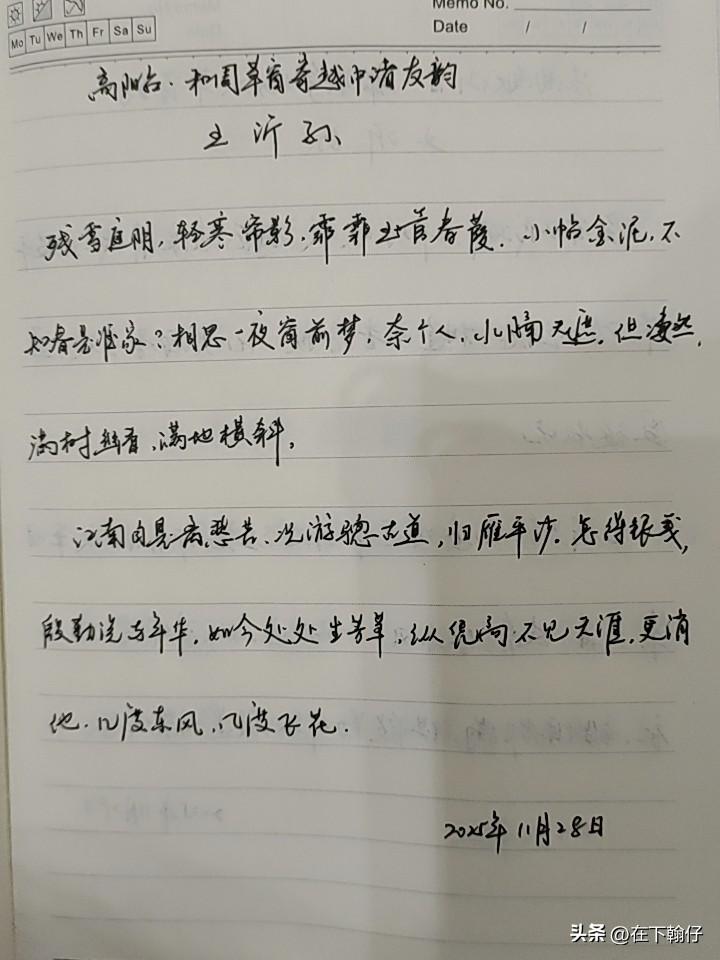 Memo No.
Mo Tu We Th Fr Sa Su
Date / /
高阳台·和周草窗寄越中诸友韵
王沂孙
残雪庭阴,轻寒帘影,霏霏玉管春葭.小帖金泥,不
知春是谁家?相思一夜窗前梦,奈个人、水隔天遮.但凄然,
满树幽香,满地横斜。
江南自是离愁苦,况游骢古道,归雁平沙.怎得银笺,
殷勤说与年华,如今处处生芳草,纵凭高不见天涯,更消
他.几度东风,几度飞花.
2025年11月28日
头条 @在下翰仔